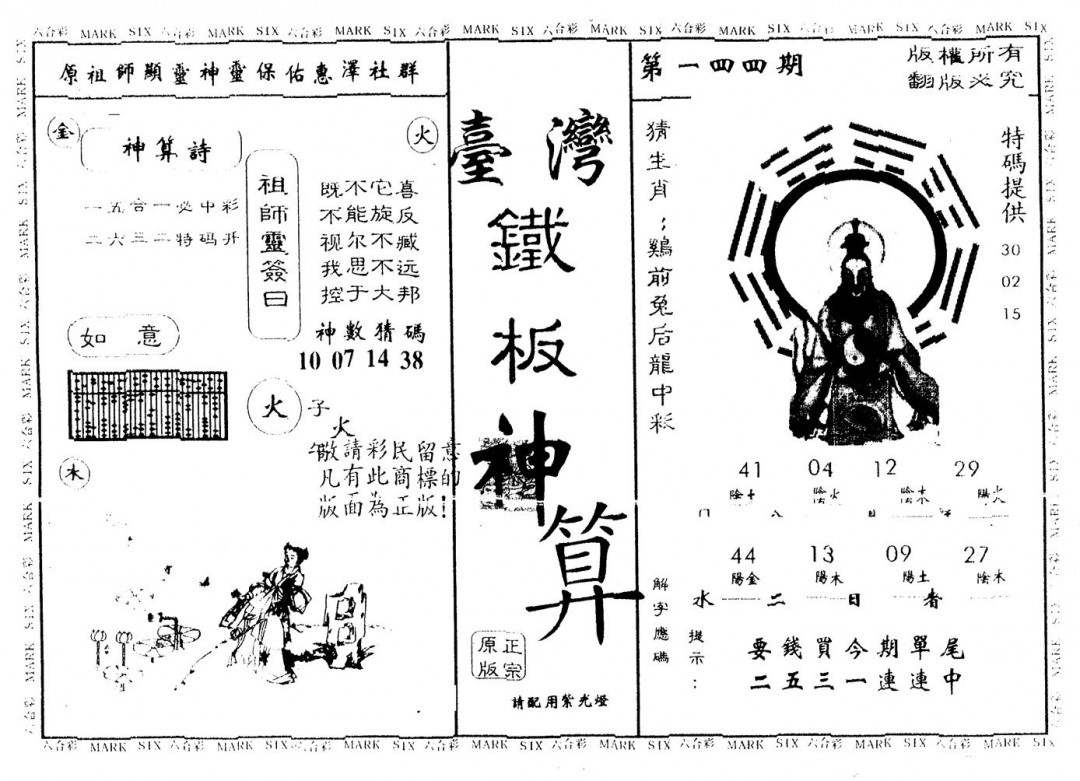 六合彩 MARK SIX 六合彩 MARK SIX 六合彩 MARK SIX 六合彩 MARK SIX 六合彩 MARK SIX 六合彩 MARK SIX 六合彩 MARK SIX 六合彩 MARK SIX
原祖師顯靈神靈保佑惠澤社群
金
神算詩
火
一五合一必中彩
二六三二特码开
祖師靈簽曰
既不它喜
不能旋反
视尔不臧
我思不远
控于大邦
神數猜碼
10 07 14 38
如意
火
子
火
敬請彩民留意
凡有此商標的
版面為正版!
木
臺灣
鐵板神算
正宗
原版
請配用紫光燈
第一四四期
版權所有
翻版必究
猜生肖:鷄前兔后龍中彩
特碼提供
30
02
15
41 04 12 29
陰土 陰火 陰木 陽火
44 13 09 27
陽金 陽木 陽土 陰木
水 二 日 者
解字應碼
提示:
要錢買今期單尾
二五三一連連中
六合彩 MARK SIX 六合彩 MARK SIX 六合彩 MARK SIX 六合彩 MARK SIX 六合彩 MARK SIX 六合彩 MARK SIX 六合彩 MARK SIX 六合彩 MARK SIX